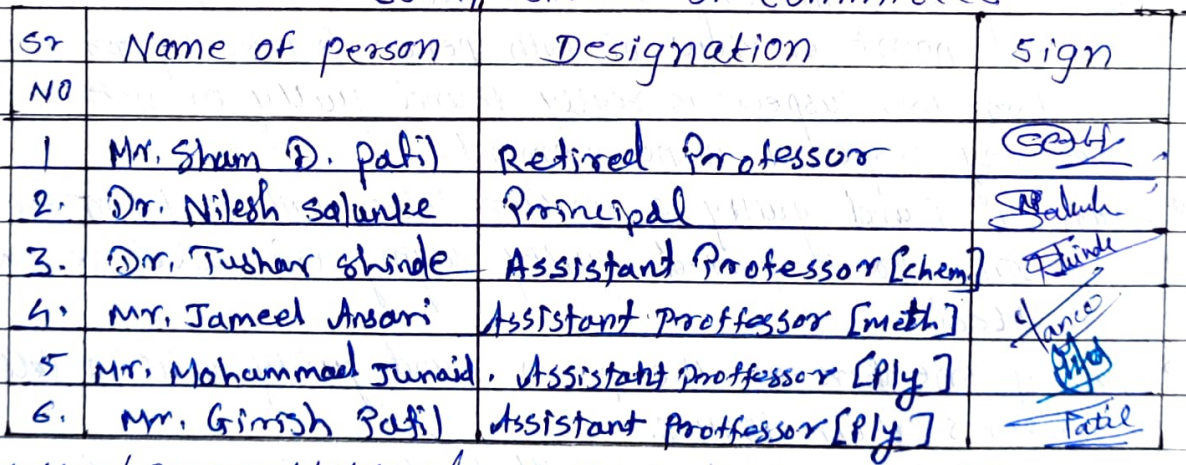 Sr Name of person Designation Sign
NO
1 Mr. Sham D. Patil Retired Professor
2. Dr. Nilesh Salunke Principal
3. Dr. Tushar Shinde Assistant Professor [chem] Shinde
4. Mr. Jameel Ansari Assistant Proffessor [Meth]
5 Mr. Mohammad Junaid. Assistant Proffessor [Ply]
6. Mr. Girish Patil Assistant Proffessor [Ply] Patil